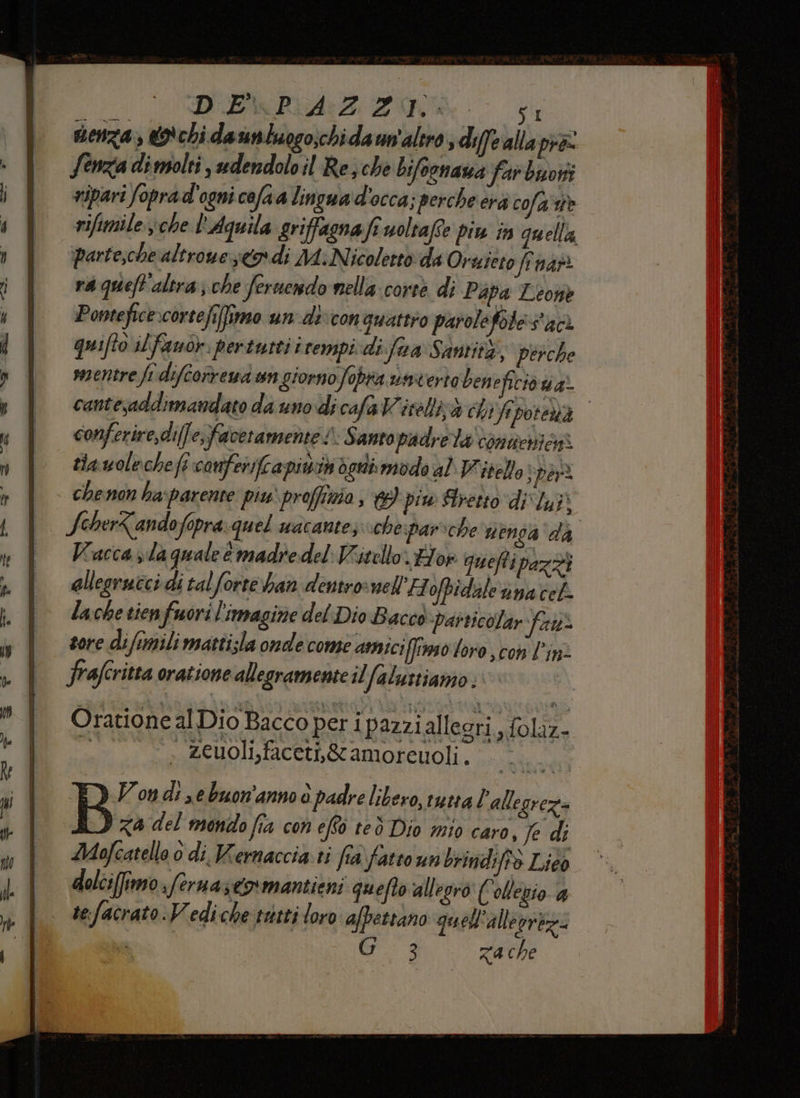 DE' PAZZI. 51
uenza, & chi da un luogo, chi da un'altro, disse alla pre-
senza di molti, udendolo il Re, che bisognaua far buoni
ripari sopra d'ogni cosa a lingua d'occa; perche era cosa ve
risimile, che l'Aquila griffagna si uoltasse piu in quella
parte, che altroue, & di M. Nicoletto da Oruieto si nar-
rà quest'altra, che seruendo nella corte di Papa Leone
Pontefice cortesissimo un dì con quattro parole sole s'ac-
quistò il fauor per tutti i tempi di sua Santità, perche
mentre si discorreua un giorno sopra un certo beneficio ua-
cante, addimandato da uno di casa Vitelli, à chi si poteua
conferire, disse, facetamente: Santo padre la conuenien-
tia uole che si conferisca piu in ogni modo al Vitello, per-
che non ha parente piu prossima, & piu stretto di lui,
scherzando sopra quel uacante, che par che uenga da
Vacca, la quale è madre del Vitello. Hor questi pazzi
allegrucci di tal sorte han dentro nell'Hospidale una cel-
la che tien fuori l'imagine del Dio Bacco particolar fau-
tore di simili matti, la onde come amicissimo loro, con l'in-
frascritta oratione allegramente il saluttiamo.
Oratione al Dio Bacco per i pazzi allegri, solaz-
zeuoli, faceti, & amoreuoli.
BVon dì, e buon'anno ò padre libero, tutta l'allegrez-
za del mondo sia con esso te ò Dio mio caro, se di
Moscatello ò di Vernaccia ti sia fatto un brindisi ò Lieo
dolcissimo, serua, & mantieni questo allegro Collegio a
te sacrato. Vedi che tutti loro aspettano quell'allegrez-
G 3 za che